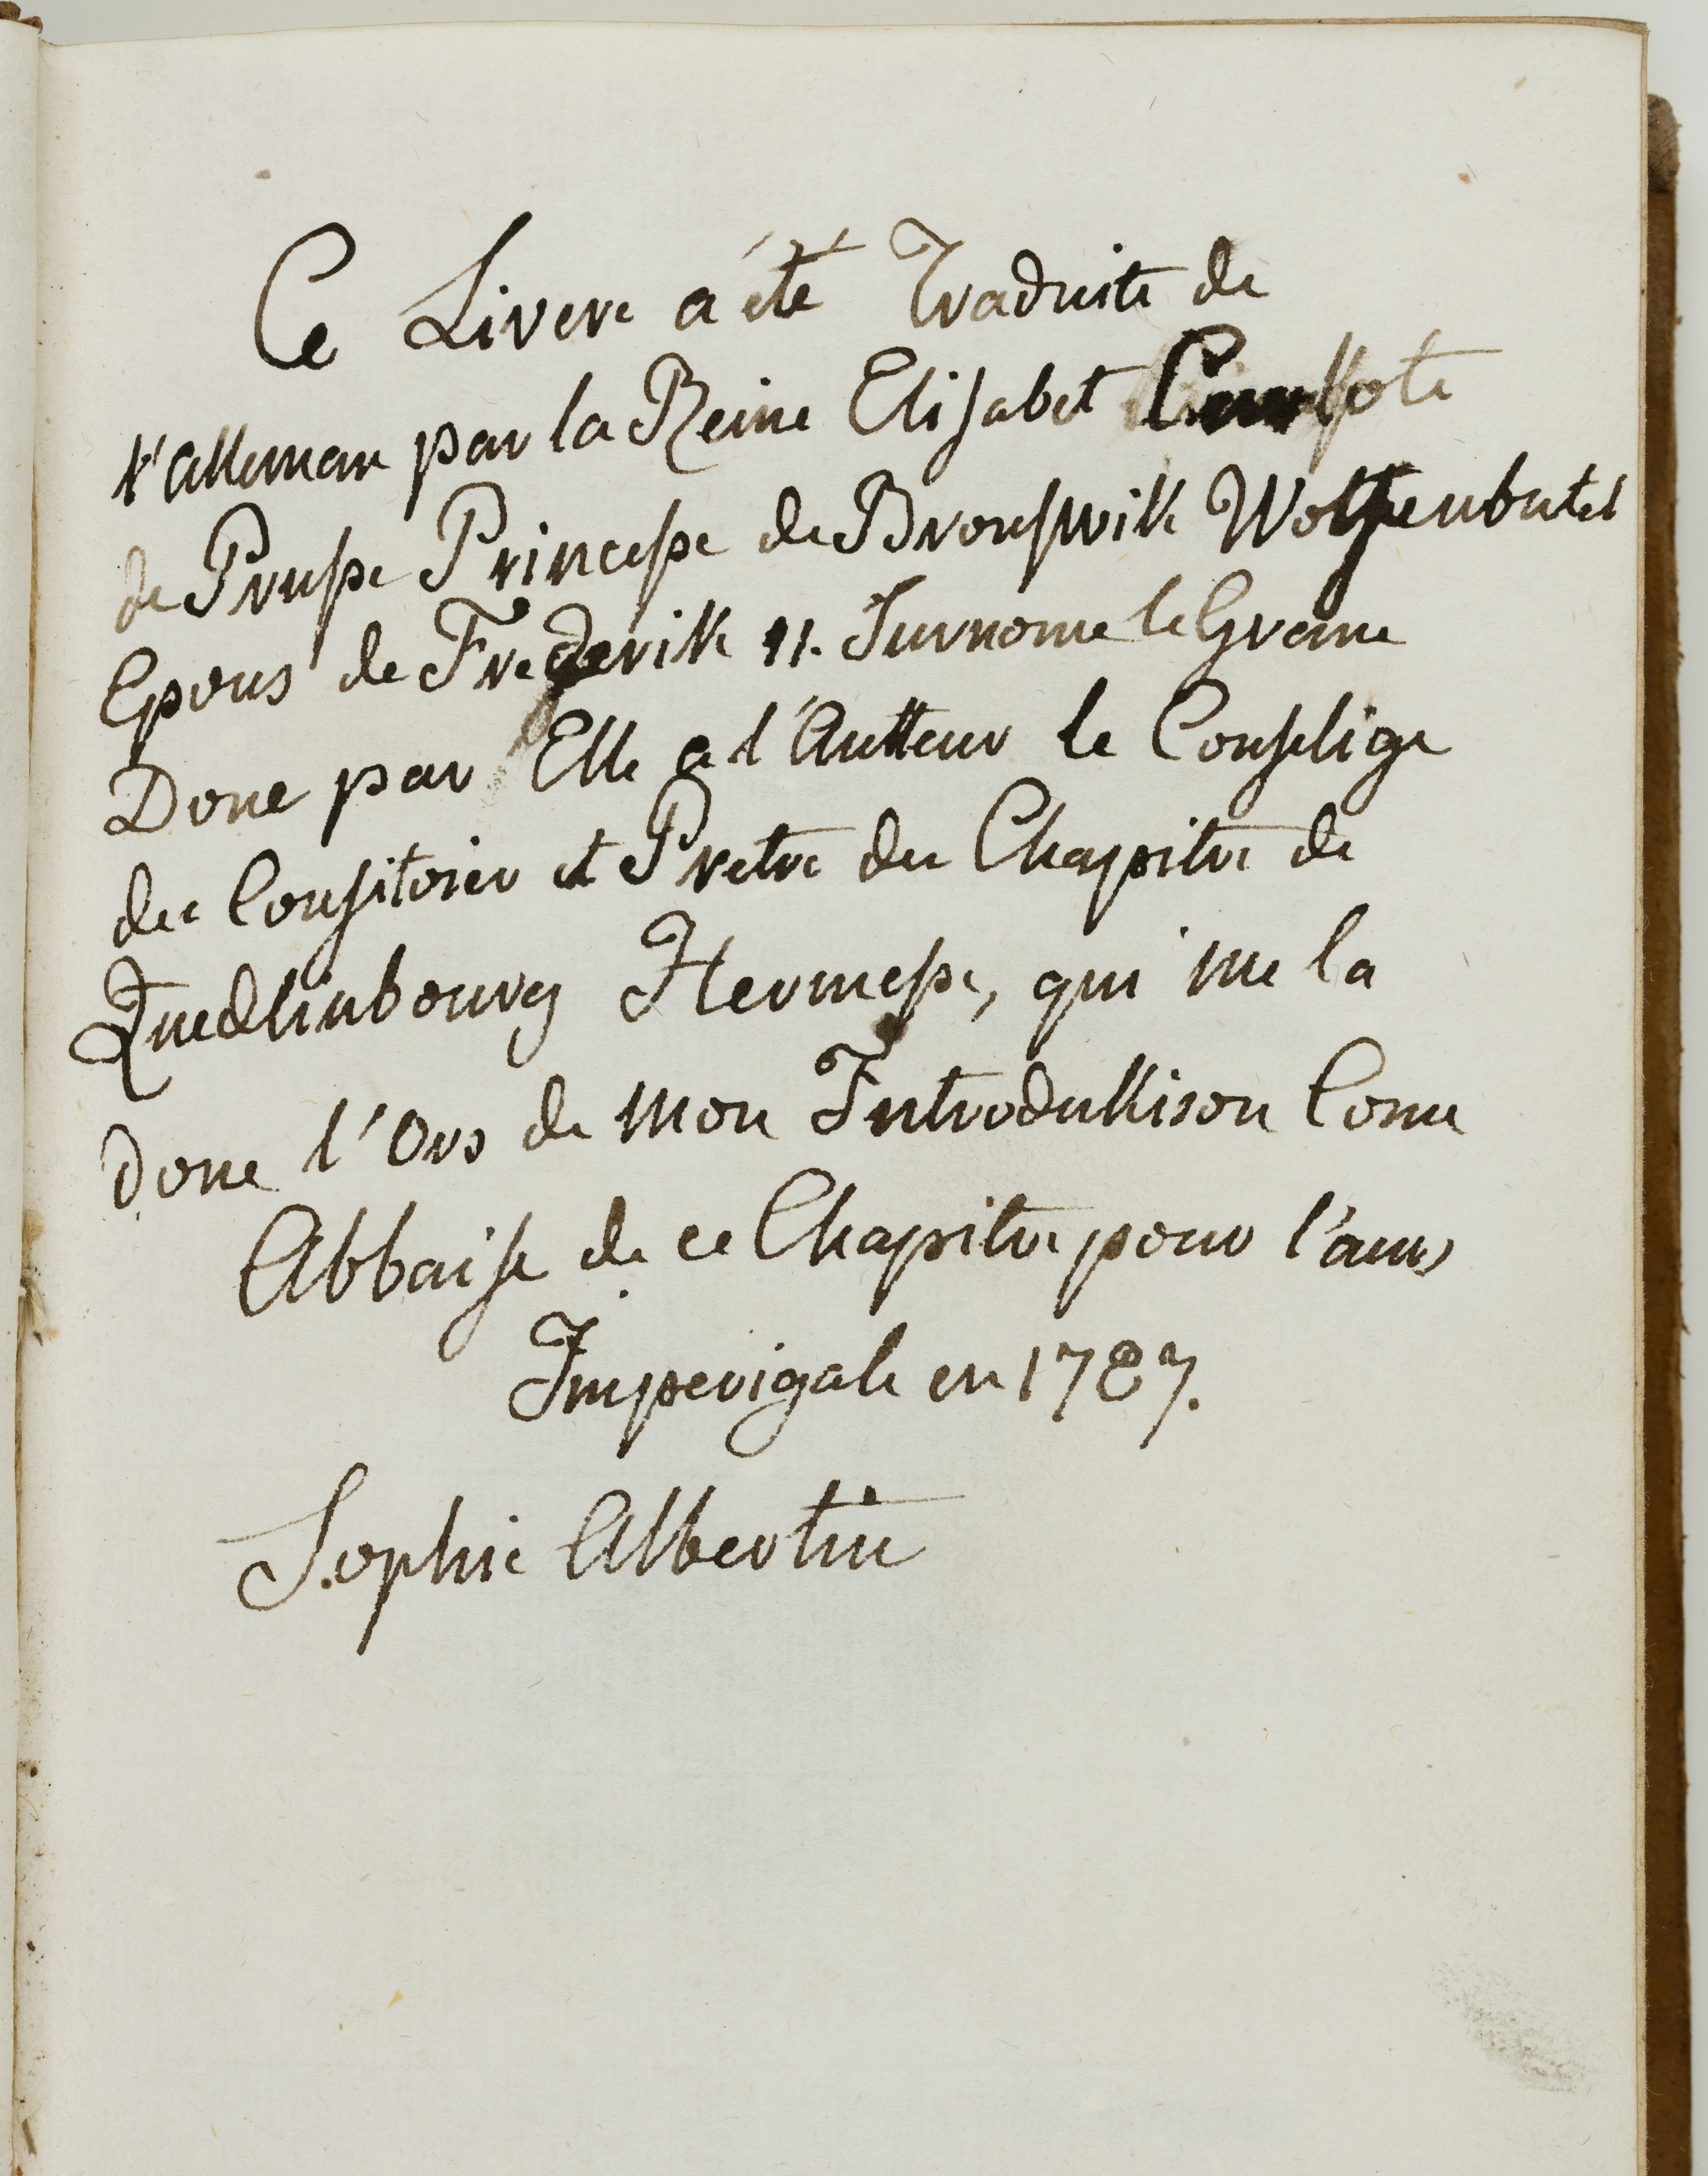 Ce Livere a été Traduite de
l'alleman par la Reine Elisabet
de Prusse Princesse de Brouswik Wolfenbutel
Epous de Frederik II. Surnome le Grane
Done par Elle a l'Autteur le Conselige
du Consitoier et Pretre du Chapitre de
Quedlinbourg Hermesse, qui me la
done l'Ors de Mon Introdukison Come
Abbaise de ce Chapitre pour
Imperigale en 1787.
Sophie Albertine